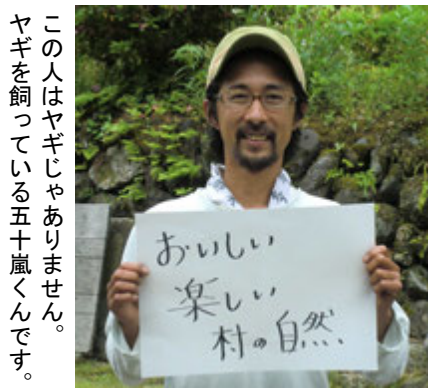 この人はヤギじゃありません。
ヤギを飼っている五十嵐くんです。
おいしい
楽しい
村の自然